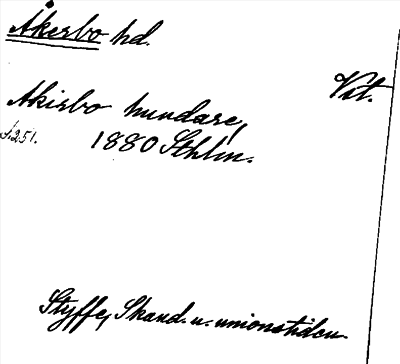 Åkerbo hd.
Vst.
Akirbo hundare,
s. 251. 1880 Sthlm.
Styffe, Skand. u. unionstiden